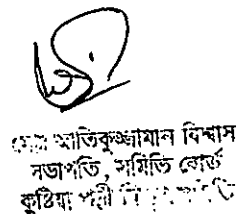 মোঃ আতিকুজ্জামান বিশ্বাস
সভাপতি, সমিতি বোর্ড
কুষ্টিয়া পল্লী